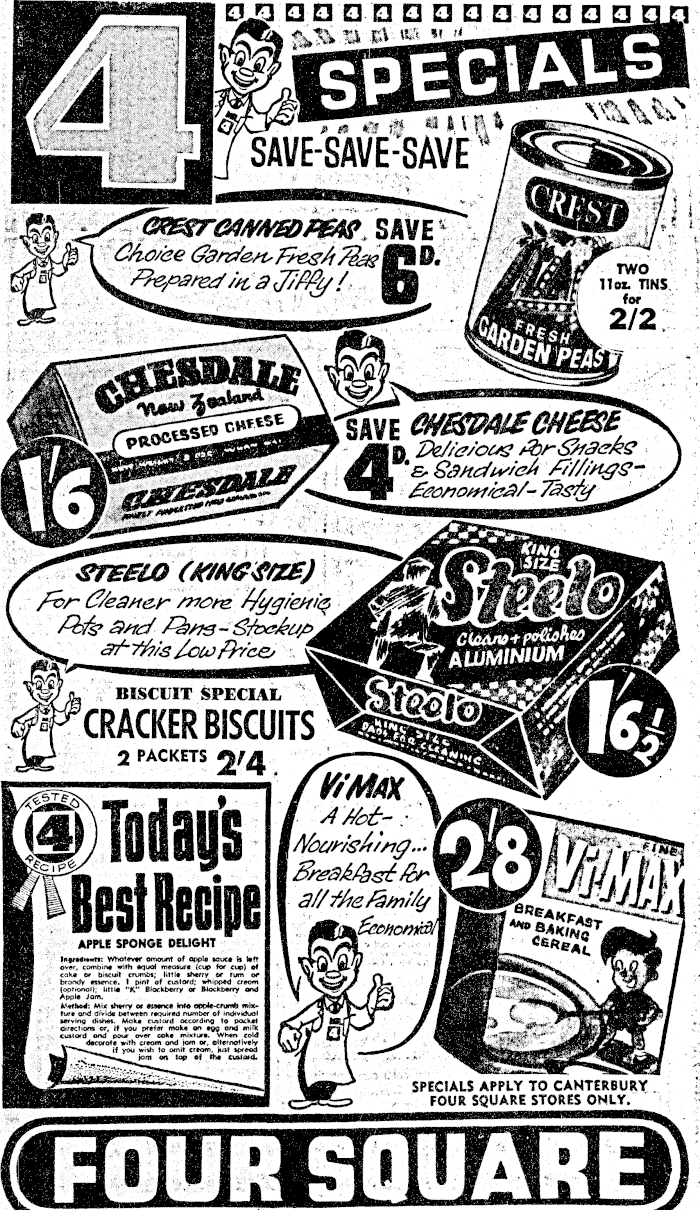 4 4 4 4 4 4 4 4 4 4 4 4 4 4 4 4
4
SPECIALS
SAVE-SAVE-SAVE
CREST CANNED PEAS
Choice Garden Fresh Peas
Prepared in a Jiffy!
SAVE
6D.
CREST
FRESH
GARDEN PEAS
TWO
11oz. TINS
for
2/2
CHESDALE
New Zealand
PROCESSED CHEESE
CHESDALE
1'6
SAVE
4D.
CHESDALE CHEESE
Delicious for Snacks
& Sandwich Fillings-
Economical-Tasty
STEELO (KING SIZE)
For Cleaner more Hygienic
Pots and Pans-Stockup
at this Low Price
KING
SIZE
Steelo
Cleans + polishes
ALUMINIUM
Steelo
KING SIZE
1'6½
BISCUIT SPECIAL
CRACKER BISCUITS
2 PACKETS 2'4
TESTED
4
RECIPE
Today's
Best Recipe
APPLE SPONGE DELIGHT
Ingredients: Whatever amount of apple sauce is left
over, combine with equal measure (cup for cup) of
cake or biscuit crumbs; little sherry or rum or
brandy essence. 1 pint of custard; whipped cream
(optional); little "K" Blackberry or Blackberry and
Apple Jam.
Method: Mix sherry or essence into apple-crumb mix-
ture and divide between required number of individual
serving dishes. Make custard according to packet
directions or, if you prefer make an egg and milk
custard and pour over cake mixture. When cold
decorate with cream and jam or, alternatively
if you wish to omit cream, just spread
jam on top of the custard.
Vi MAX
A Hot-
Nourishing...
Breakfast for
all the Family
Economical
2'8
FINE
Vi-MAX
BREAKFAST
AND BAKING
CEREAL
SPECIALS APPLY TO CANTERBURY
FOUR SQUARE STORES ONLY.
FOUR SQUARE